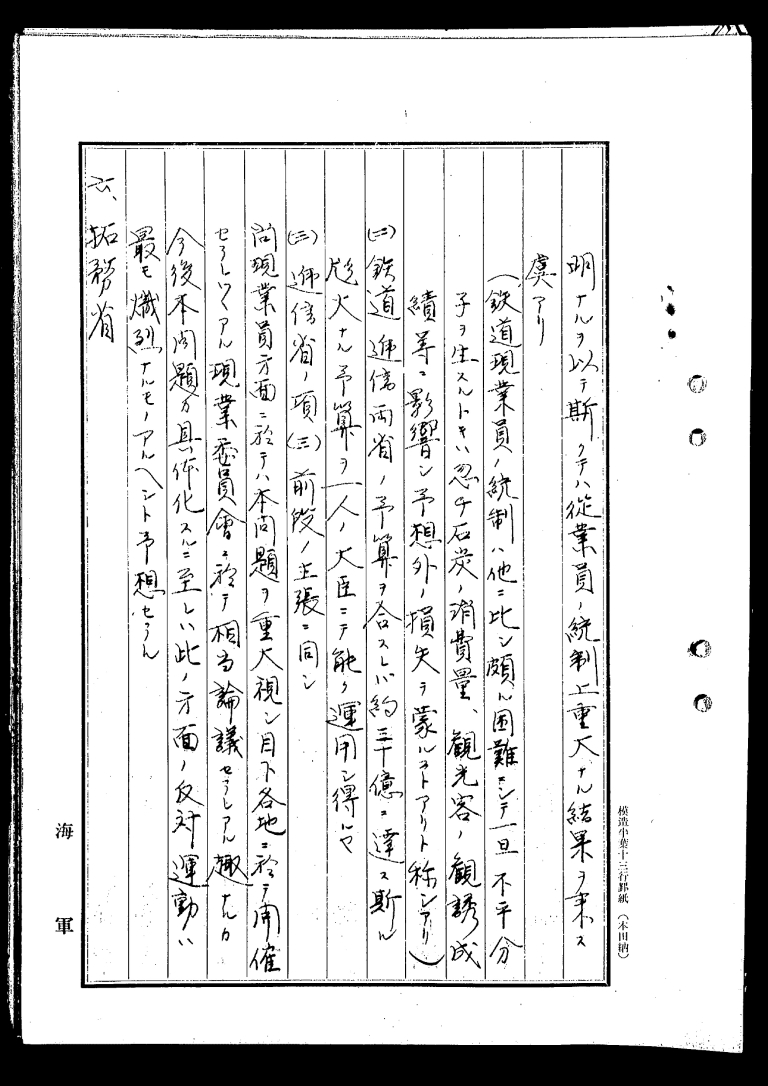 明ナルヲ以テ斯クテハ従業員ノ統制上重大ナル結果ヲ来ス
虞アリ
(鉄道現業員ノ統制ハ他ニ比シ頗ル困難ニシテ一旦不平分
子ヲ生スルトキハ忽チ石炭ノ消費量、観光客ノ観誘成
績等ニ影響シ予想外ノ損失ヲ蒙ルコトアリト称シアリ)
(二)鉄道逓信両省ノ予算ヲ合スレバ約三十億ニ達ス斯ル
尨大ナル予算ヲ一人ノ大臣ニテ能ク運用シ得ルヤ
(三)逓信省ノ項(三)前段ノ主張ニ同シ
尚現業員方面ニ於テハ本問題ヲ重大視シ目下各地ニ於テ開催
セラレツヽアル現業委員會ニ於テ相当論議セラレアル趣ナルカ
今後本問題カ具体化スルニ至レハ此ノ方面ノ反対運動ハ
最モ熾烈ナルモノアルヘシト予想セラル
六、拓務省
海軍
模造半葉十三行罫紙(本田納)